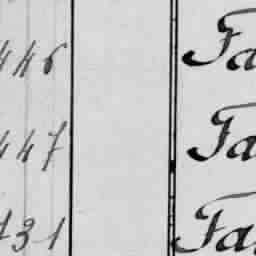 446 Fa
447 Fa
431 Fa